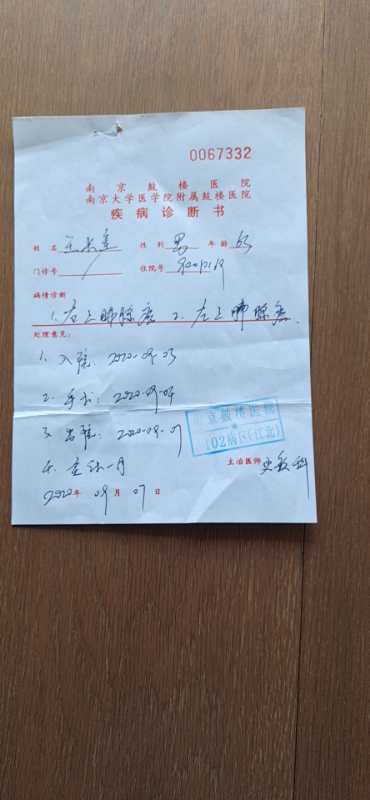 0067332
南京鼓楼医院
南京大学医学院附属鼓楼医院
疾病诊断书
姓名 王 性别 男 年龄
门诊号 住院号
病情诊断
1. 左上肺腺癌 2. 左上肺腺
处理意见:
1. 入院: 2020-09-03
2. 手术: 2020-09-04
3. 出院: 2020-09-07
4. 全休一月
京鼓楼医院
102病区(江北)
主治医师
2020年 09月 07日